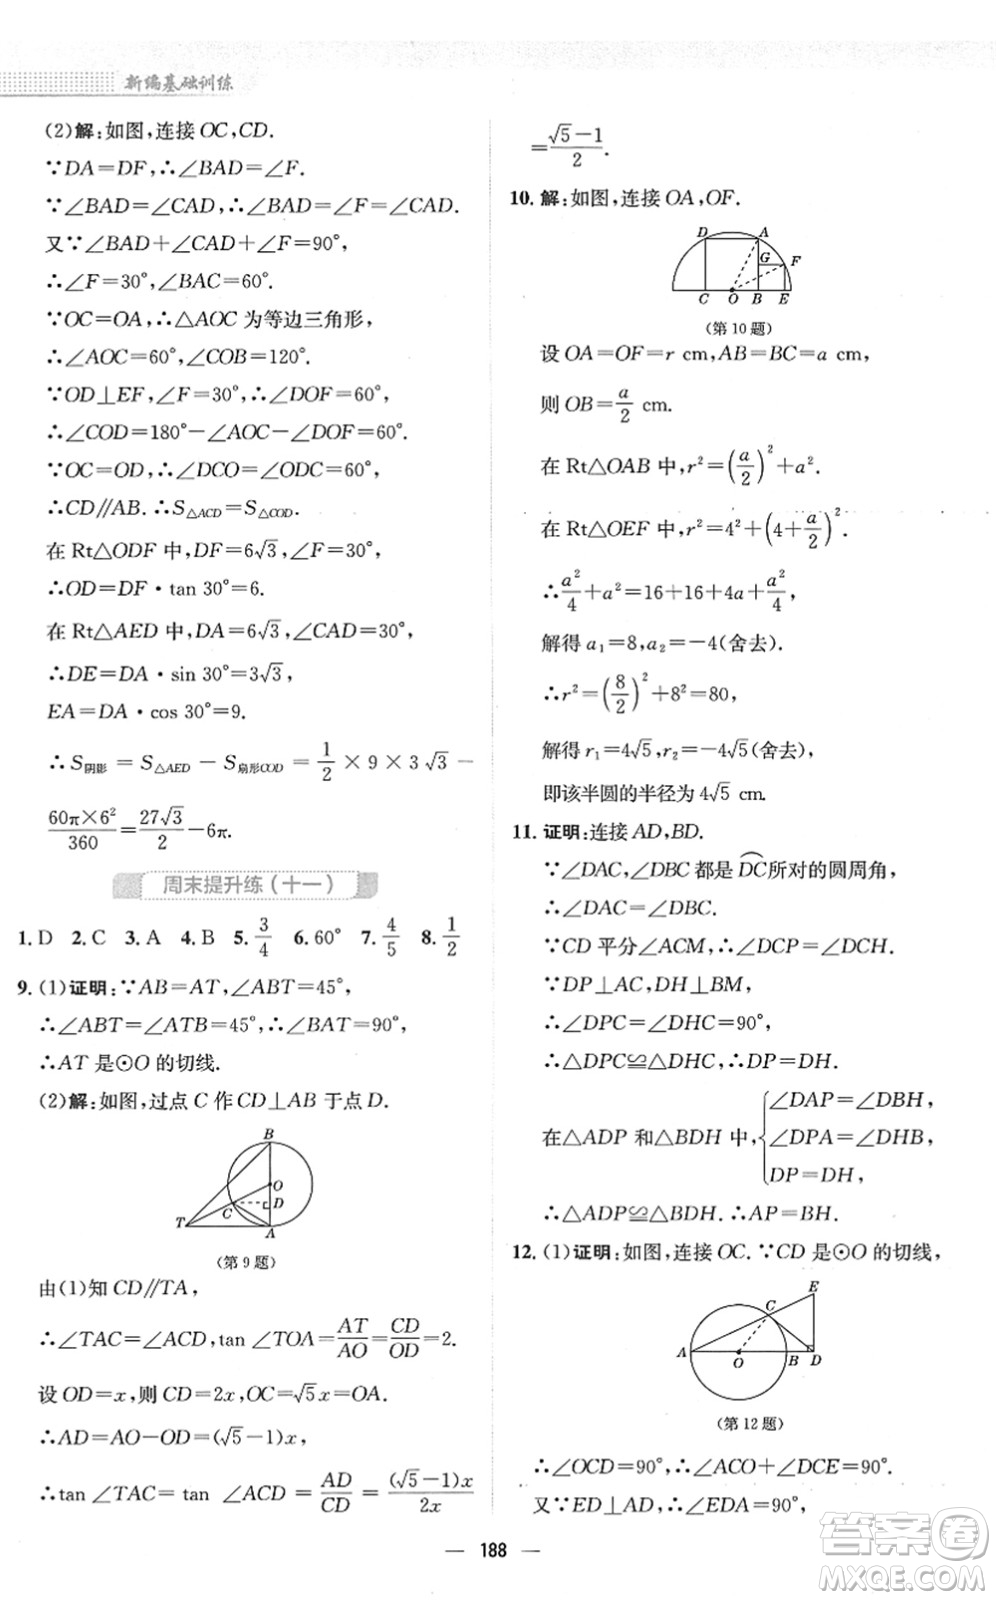 新编基础训练
(2)解:如图,连接OC,CD.
∵DA=DF,∴∠BAD=∠F.
∵∠BAD=∠CAD,∴∠BAD=∠F=∠CAD.
又∵∠BAD+∠CAD+∠F=90°,
∴∠F=30°,∠BAC=60°.
∵OC=OA,∴△AOC为等边三角形,
∴∠AOC=60°,∠COB=120°.
∵OD⊥EF,∠F=30°,∴∠DOF=60°.
∴∠COD=180°-∠AOC-∠DOF=60°.
∵OC=OD,∴∠DCO=∠ODC=60°.
∴CD∥AB.∴S△ACD=S△COD.
在Rt△ODF中,DF=6√3,∠F=30°,
∴OD=DF·tan 30°=6.
在Rt△AED中,DA=6√3,∠CAD=30°,
∴DE=DA·sin 30°=3√3,
EA=DA·cos 30°=9.
∴S阴影=S△AED-S扇形COD=1/2×9×3√3-
60π×6²/360=27√3/2-6π.
周末提升练(十一)
1.D 2.C 3.A 4.B 5.3/4 6.60° 7.4/5 8.1/2
9.(1)证明:∵AB=AT,∠ABT=45°,
∴∠ABT=∠ATB=45°,∴∠BAT=90°,
∴AT是⊙O的切线.
(2)解:如图,过点C作CD⊥AB于点D.
B
O
C
D
T
A
(第9题)
由(1)知CD∥TA,
∴∠TAC=∠ACD,tan ∠TOA=AT/AO=CD/OD=2.
设OD=x,则CD=2x,OC=√5x=OA.
∴AD=AO-OD=(√5-1)x,
∴tan ∠TAC=tan ∠ACD=AD/CD=(√5-1)x/2x
=(√5-1)/2.
10.解:如图,连接OA,OF.
D
A
G
F
C
O
B
E
(第10题)
设OA=OF=r cm,AB=BC=a cm,
则OB=a/2 cm.
在Rt△OAB中,r²=(a/2)²+a².
在Rt△OEF中,r²=4²+(4+a/2)².
∴a²/4+a²=16+16+4a+a²/4,
解得a₁=8,a₂=-4(舍去).
∴r²=(8/2)²+8²=80,
解得r₁=4√5,r₂=-4√5(舍去),
即该半圆的半径为4√5 cm.
11.证明:连接AD,BD.
∵∠DAC,∠DBC都是⌒DC所对的圆周角,
∴∠DAC=∠DBC.
∵CD平分∠ACM,∴∠DCP=∠DCM.
∵DP⊥AC,DH⊥BM,
∴∠DPC=∠DHC=90°,
∴△DPC≌△DHC,∴DP=DH.
在△ADP和△BDH中,{∠DAP=∠DBH,
∠DPA=∠DHB,
DP=DH,
∴△ADP≌△BDH.∴AP=BH.
12.(1)证明:如图,连接OC.∵CD是⊙O的切线,
E
C
A
O
B
D
(第12题)
∴∠OCD=90°,∴∠ACO+∠DCE=90°.
又∵ED⊥AD,∴∠EDA=90°,
— 188 —
答案卷
MXQE.COM